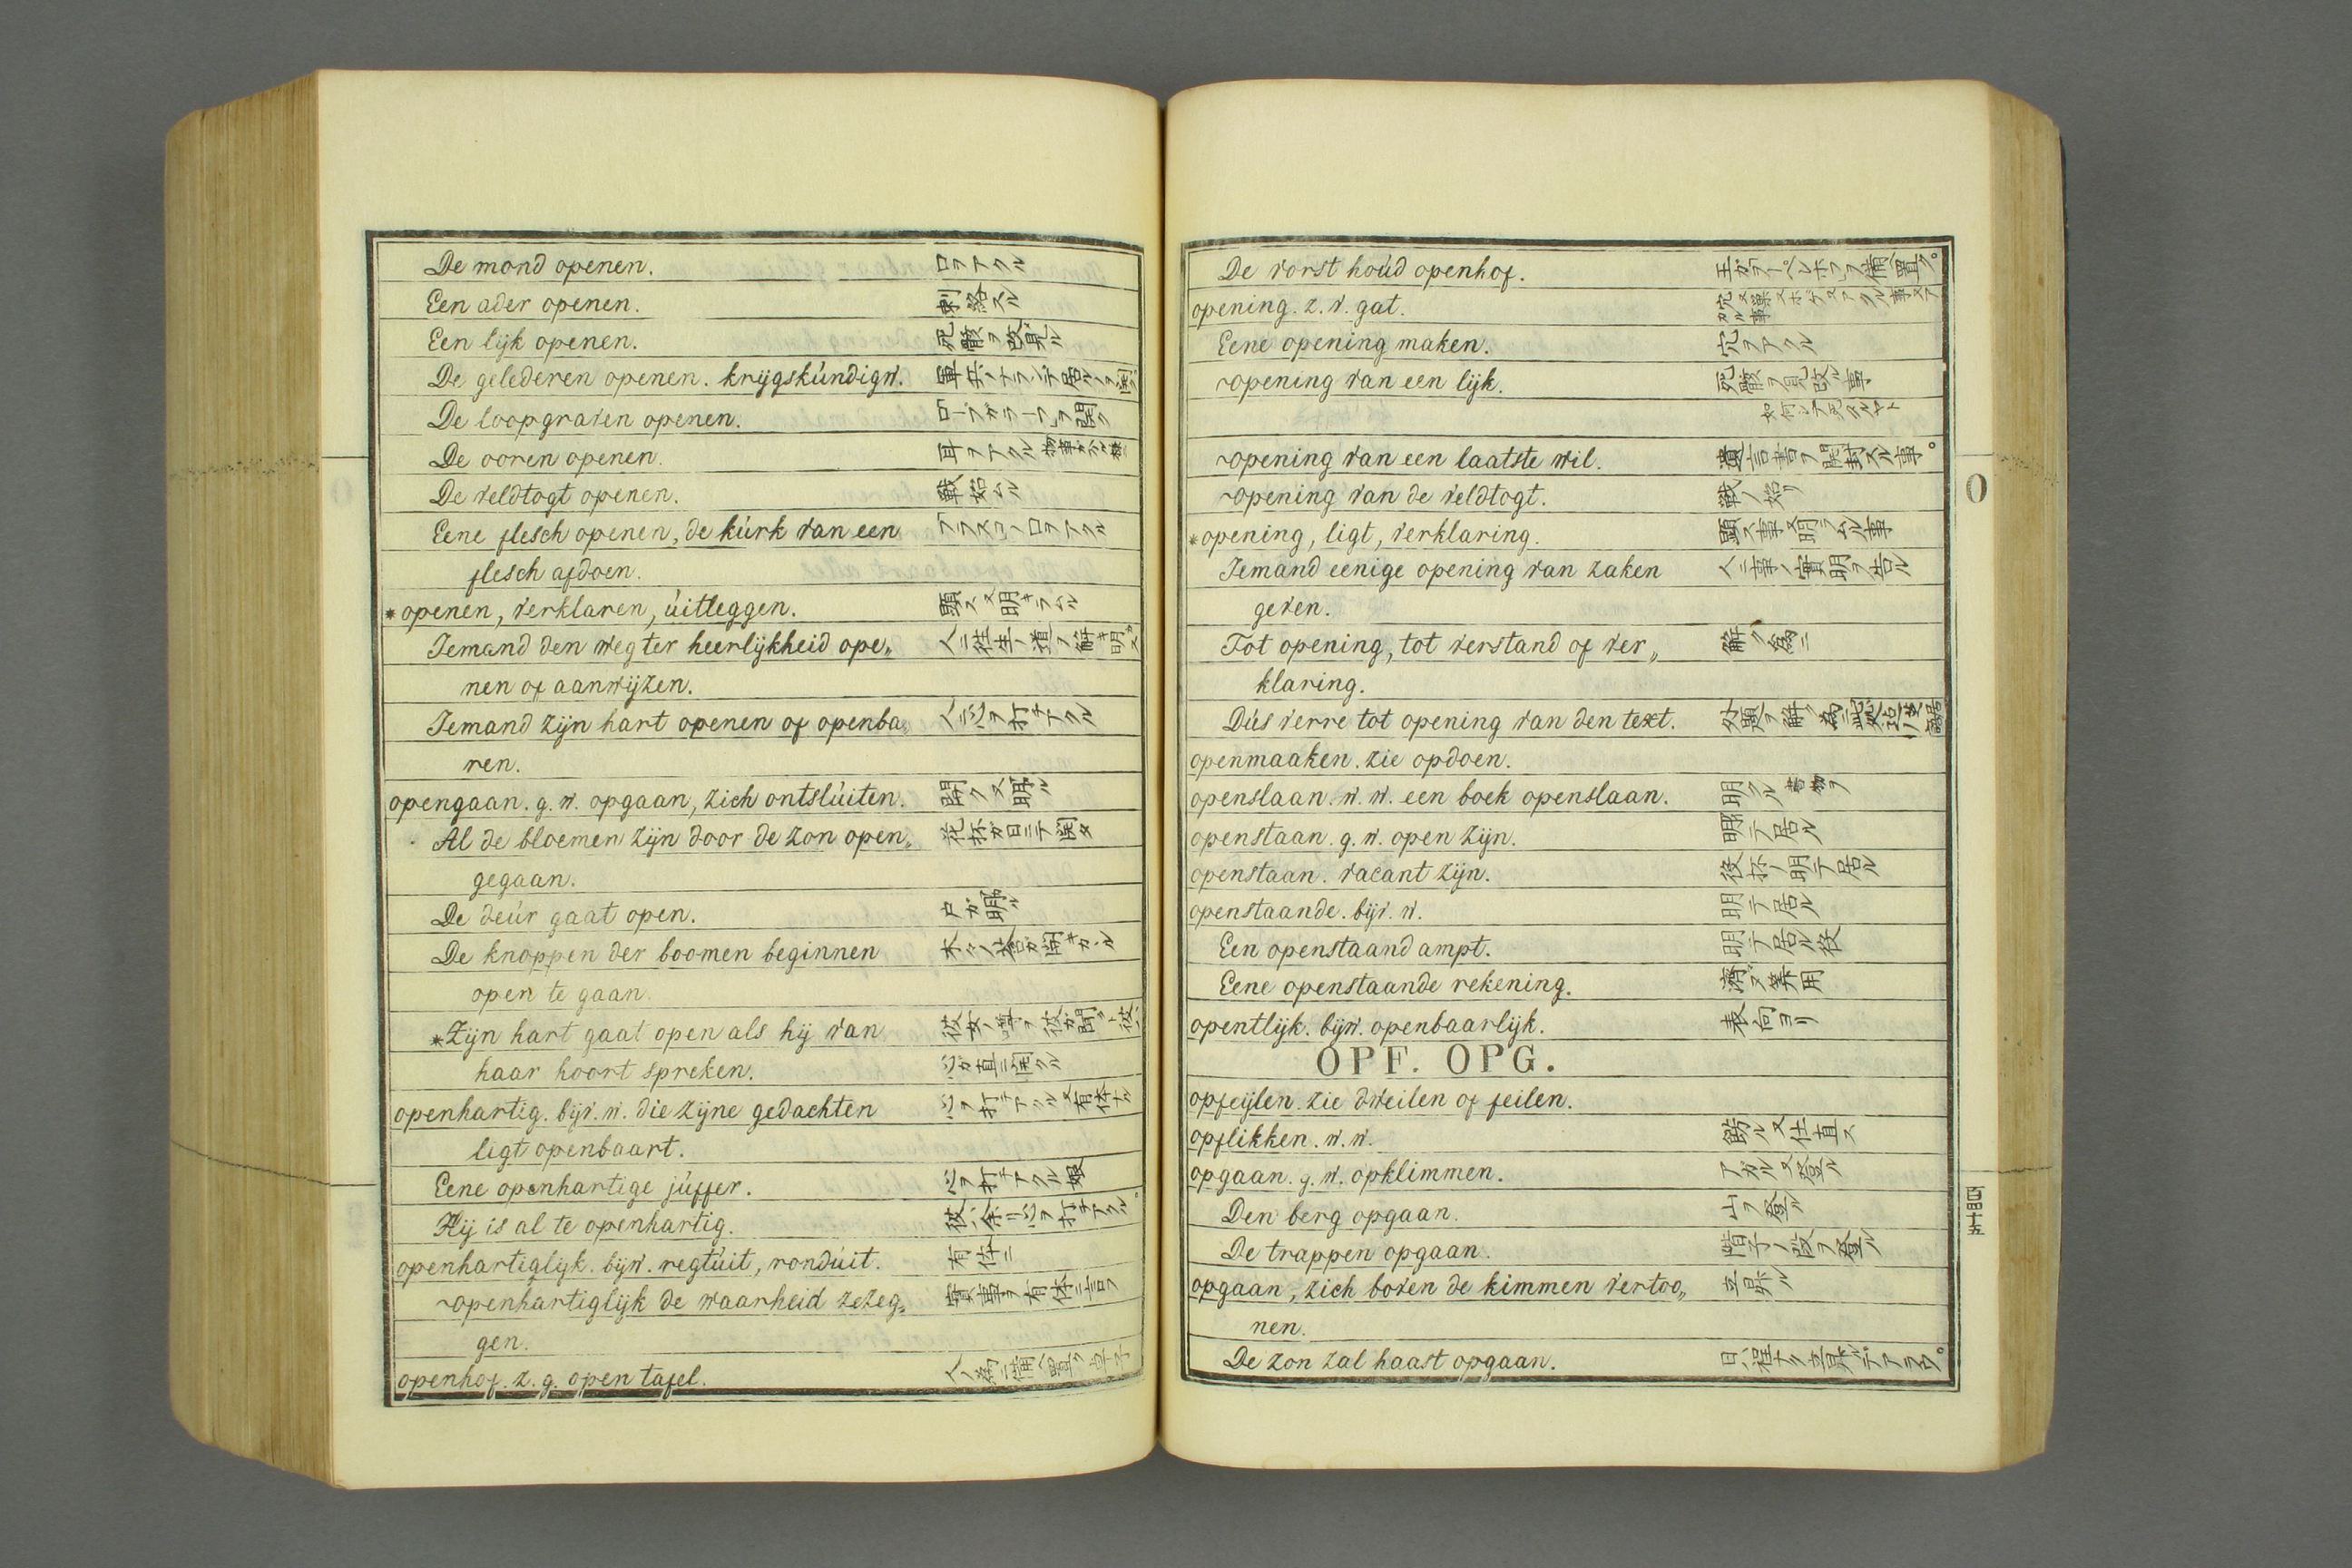 De mond openen. 口ヲアクル
Een ader openen. 刺絡スル
Een lijk openen. 死骸ヲ改見ル
De gelederen openen. krijgskúndigw.
De loopgraven openen. ロープガラーフヲ開ク
De ooren openen. 耳ヲアクル
De veldtogt openen. 戦始ムル
Eene flesch openen, de kúrk van een フラスコノ口ヲアクル
flesch afdoen.
*openen, verklaren, úitleggen. 顕ス又明キラムル
Iemand den weg ter heerlijkheid ope„ 人ニ徃生ノ道ヲ解キ明カス
nen of aanwijzen.
Iemand zijn hart openen of openba„ 人ニ心ヲ打チアクル
ren.
opengaan. g. w. opgaan, zich ontslúiten. 開ク又明ル
Al de bloemen zijn door de zon open„ 花抔ガ日ニテ開タ
gegaan.
De deúr gaat open. 戸ガ明ル
De knoppen der boomen beginnen
open te gaan.
*Zijn hart gaat open als hij van 彼女ノ噂ヲ彼ガ聞クト彼ノ
haar hoort spreken. 心ガ直ニ開クル
openhartig. bijv. w. die zijne gedachten 心ヲ打チアクル又有体ナル
ligt openbaart.
Eene openhartige júffer. 心ヲ打チアクル娘
Hij is al te openhartig. 彼ハ余リ心ヲ打チアクル。
openhartiglijk. bijw. regtúit, rondúit. 有体ニ
~openhartiglijk de waarheid zezeg„ 實事ヲ有体ニ言フ
gen.
openhof. z. g. open tafel. 人ノ為ニ備ヘ置ク卓子
De vorst hoúd openhof.
opening. z. v. gat.
Eene opening maken. 穴ヲアクル
~opening van een lijk. 死骸ヲ見改ル事
如何シテ死タルヤト
~opening van een laatste wil. 遺言書ヲ開封スル事。
~opening van de veldtogt. 戦ノ始リ
*opening, ligt, verklaring. 顕ス事又明ラムル事
Iemand eenige opening van zaken 人ニ事ノ實明ヲ告ル
geven.
Tot opening, tot verstand of ver„ 解ク為ニ
klaring.
Dús verre tot opening van den text.
openmaaken. zie opdoen.
openslaan. w. w. een boek openslaan. 明クル書物ヲ
openstaan. g. w. open zijn. 明テ居ル
openstaan. vacant zijn. 役抔ノ明テ居ル
openstaande. bijv. w. 明テ居ル
Een openstaand ampt. 明テ居ル役
Eene openstaande rekening. 済ヌ筭用
opentlijk. bijw. openbaarlijk. 表向ヨリ
OPF. OPG.
opfeijlen. zie dweilen of feilen.
opflikken. w. w. 又仕直ス
opgaan. g. w. opklimmen. アガル又登ル
Den berg opgaan. 山ヲ登ル
De trappen opgaan. 階子ノ段ヲ登ル
opgaan, zich boven de kimmen vertoo„ 立昇ル
nen.
De zon zal haast opgaan. 日ハ程ナク立昇ルデアラウ。
O
百四十五